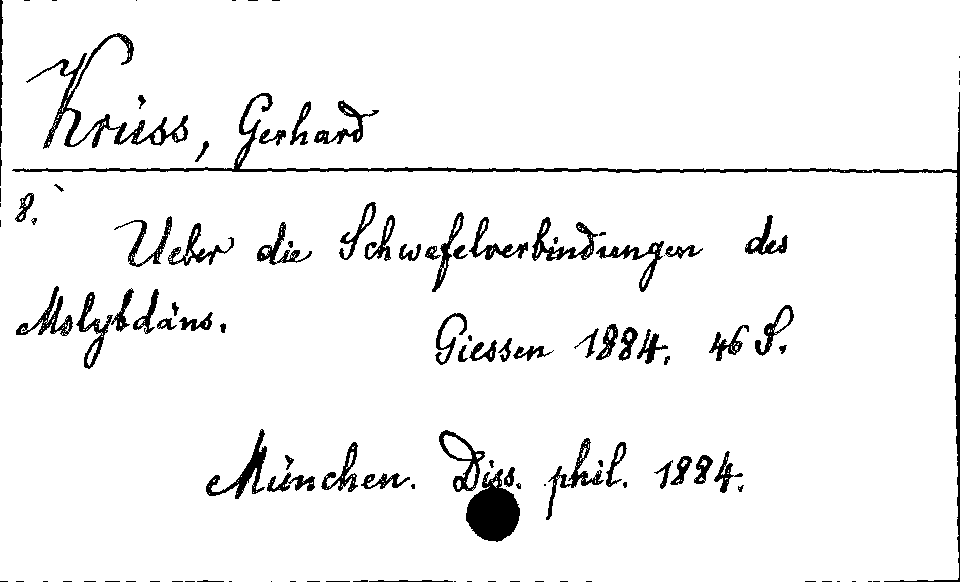 Krüss, Gerhard
8.
Ueber die Schwefelverbindungen des
Molybdäns.
Giessen 1884. 46 S.
München. Diss. phil. 1884.